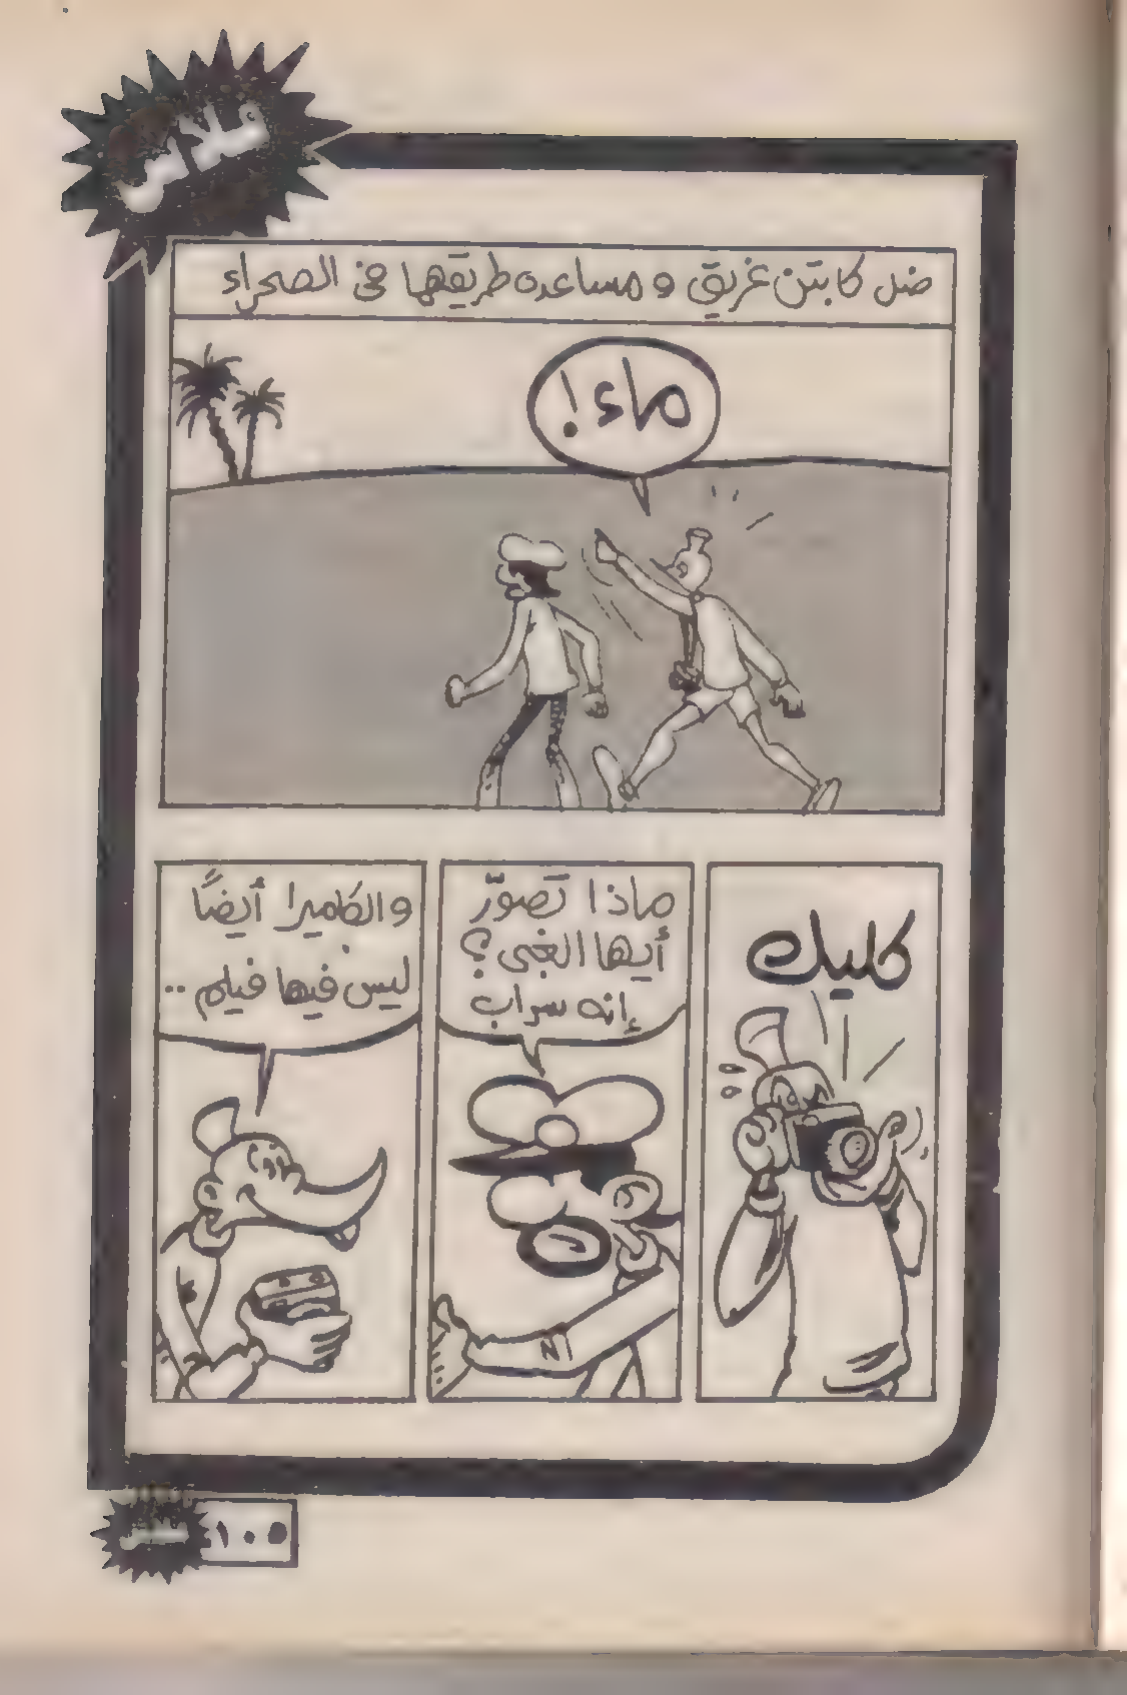 فلاش
ضل كابتن غريق و مساعده طريقهما فى الصحراء
ماء!
كليك
ماذا تصوّر
أيها الغبى؟
إنه سراب
والكاميرا أيضًا
ليس فيها فيلم..
N
١٠٥